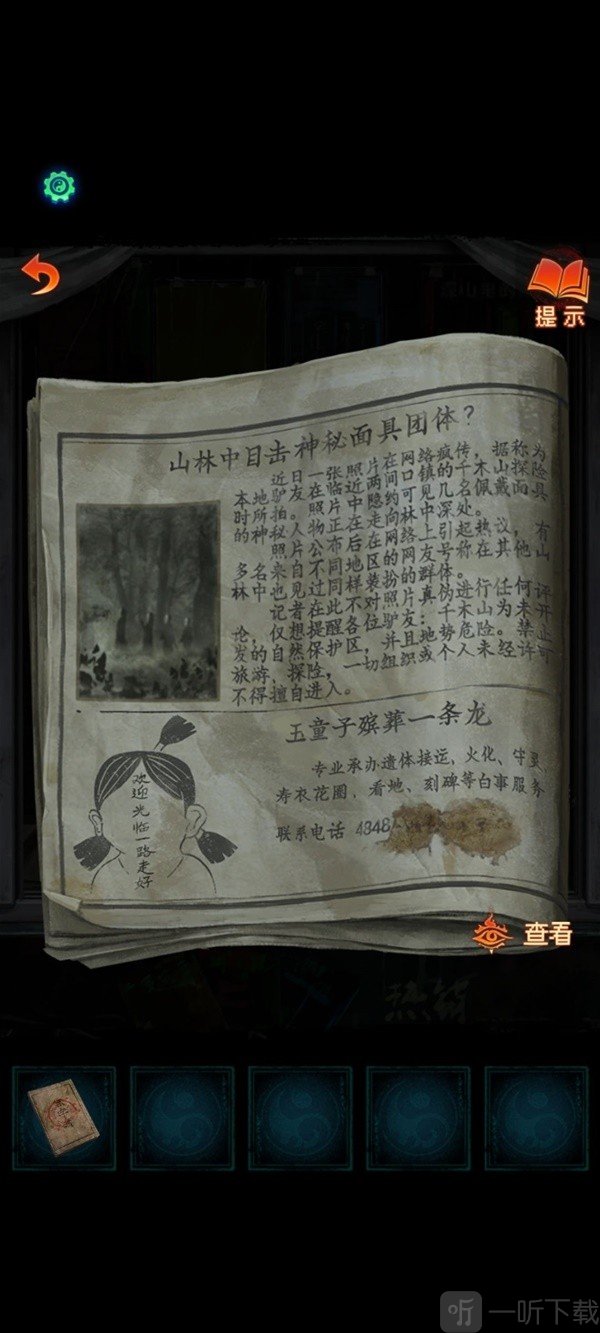 提示
山林中目击神秘面具团体？
近日一张照片在网络疯传，据称为
本地驴友在临近两间口镇的千木山探险
时所拍。照片中隐约可见几名佩戴面具
的神秘人物正在走向林中深处。
照片公布后在网络上引起热议，有
多名来自不同地区的网友号称在其他山
林中也见过同样装扮的群体。
记者在此不对照片真伪进行任何评
论，仅想提醒各位驴友：千木山为未开
发的自然保护区，并且地势危险。禁止
旅游、探险，一切组织或个人未经许可
不得擅自进入。
玉童子殡葬一条龙
专业承办遗体接运，火化、守灵、
寿衣花圈、看地、刻碑等白事服务
联系电话 4848
欢迎光临一路走好
查看
一听下载